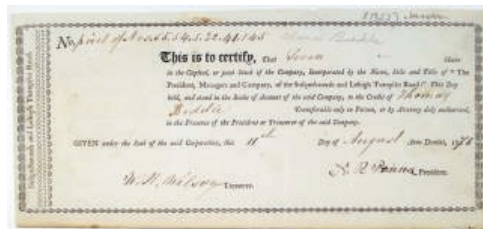 No.
This is to certify, That Seven Share
in the Capital, or joint Stock of the Company, Incorporated by the Name, Stile and Title of "The
President, Managers and Company, of the Susquehannah and Lehigh Turnpike Road:" This Day
held, and stand in the Books of Account of the said Company, to the Credit of Thomas
Biddle Transferable only in Person, or by Attorney duly authorized,
in the Presence of the President or Treasurer of the said Company.
GIVEN under the Seal of the said Corporation, this 11th Day of August Anno Domini,
Treasurer.
President.
Susquehannah and Lehigh Turnpike Road.